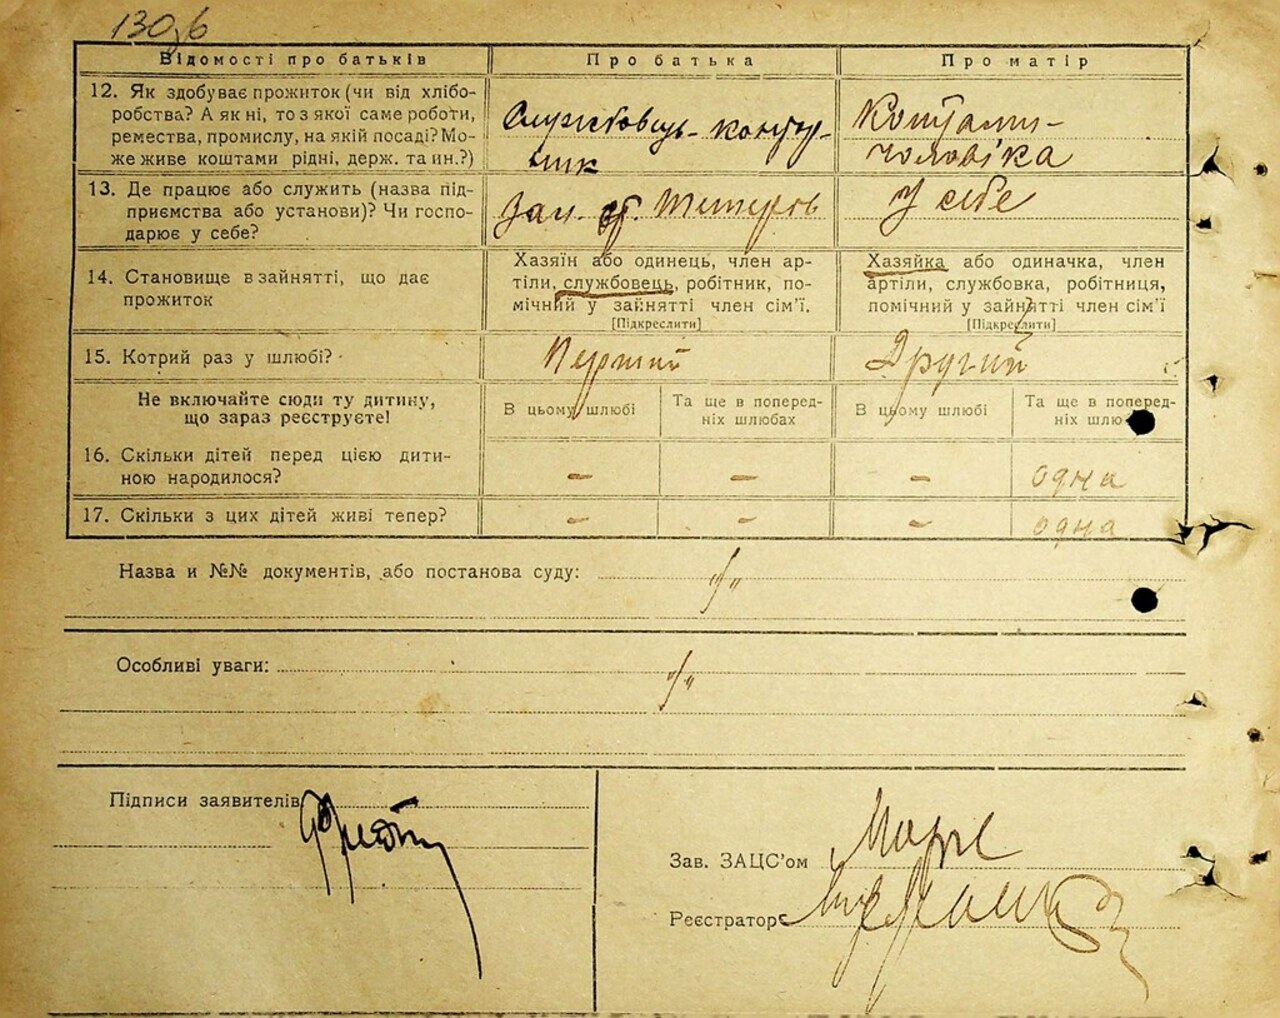 130зб
Відомості про батьків
Про батька
Про матір
12. Як здобуває прожиток (чи від хлібо-
робства? А як ні, то з якої саме роботи,
ремества, промислу, на якій посаді? Мо-
же живе коштами рідні, держ. та ин.?)
Службовець - контор-
ник
Коштами
чоловіка
13. Де працює або служить (назва під-
приємства або установи)? Чи госпо-
дарює у себе?
Зал. ст. Тетерів
У себе
14. Становище в зайнятті, що дає
прожиток
Хазяїн або одинець, член ар-
тіли, службовець, робітник, по-
мічний у зайнятті член сім'ї.
[Підкреслити]
Хазяйка або одиначка, член
артіли, службовка, робітниця,
помічний у зайнятті член сім'ї
[Підкреслити]
15. Котрий раз у шлюбі?
Перший
Другий
Не включайте сюди ту дитину,
що зараз реєструєте!
В цьому шлюбі
Та ще в поперед-
ніх шлюбах
В цьому шлюбі
Та ще в поперед-
ніх шлю
16. Скільки дітей перед цією дити-
ною народилося?
–
–
–
одна
17. Скільки з цих дітей живі тепер?
–
–
–
одна
Назва и №№ документів, або постанова суду:
Особливі уваги:
Підписи заявителів
Зав. ЗАЦС'ом
Реєстратор